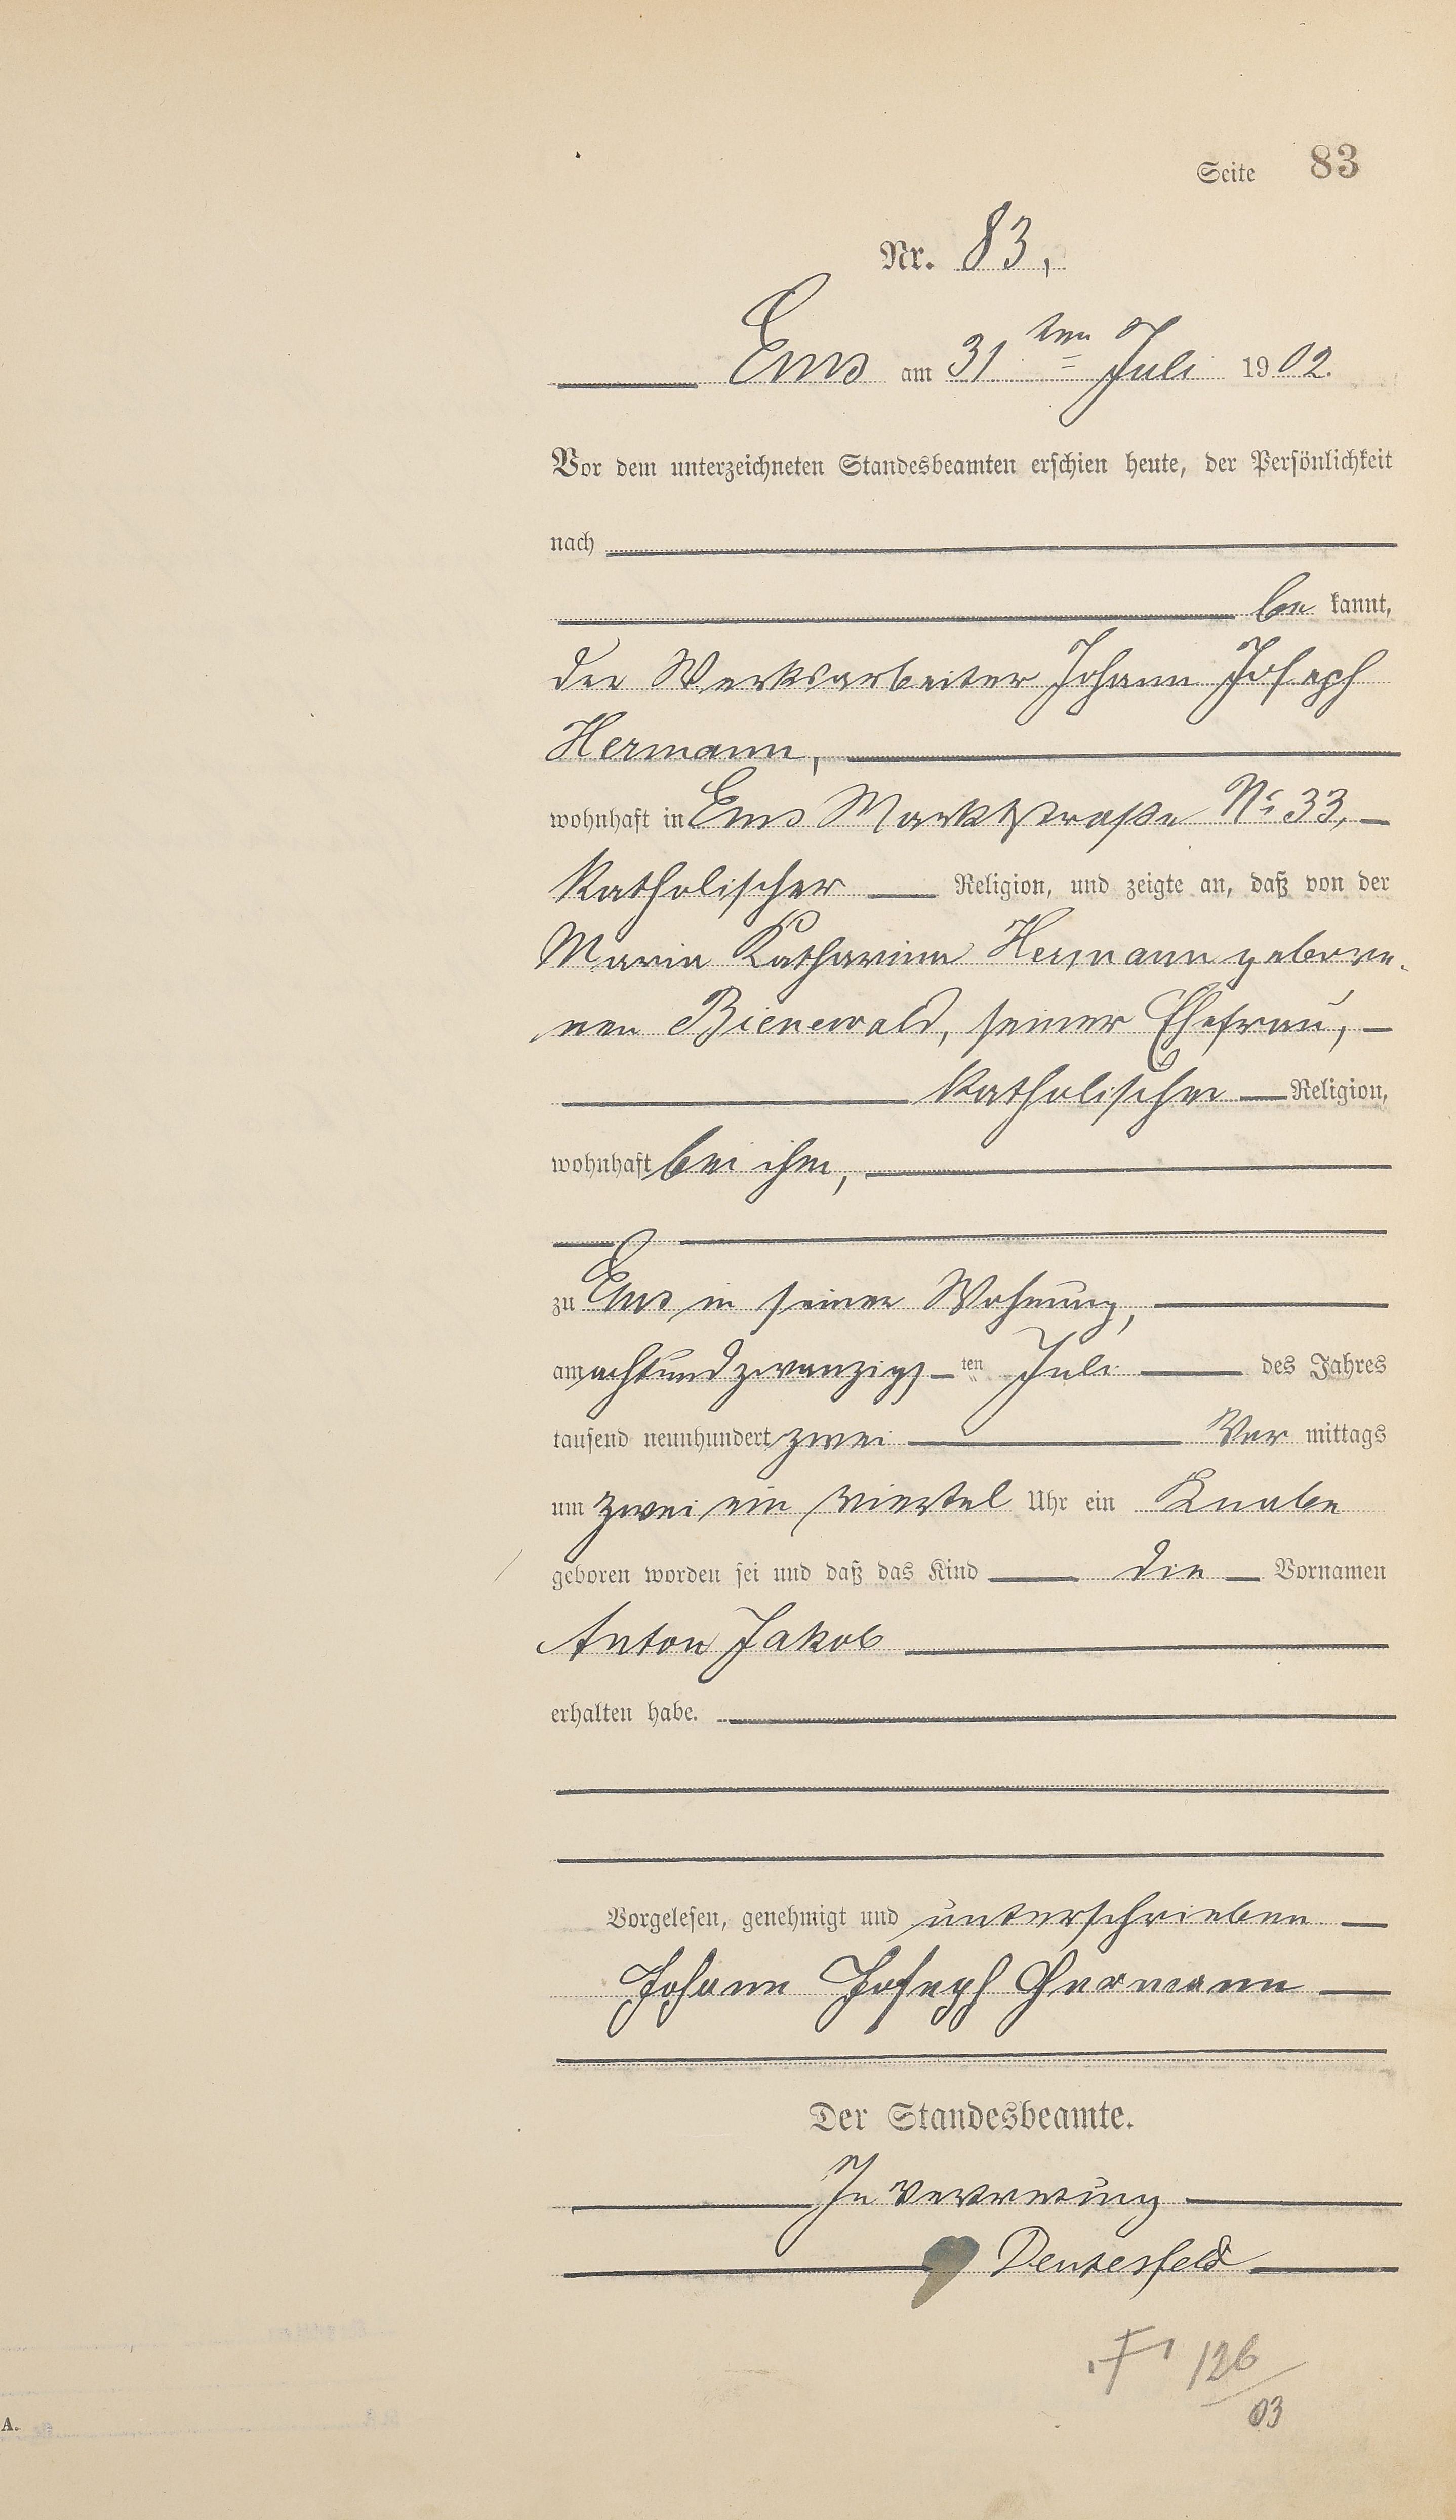 Seite 83
Nr. 83,
Ems am 31ten Juli 1902.
Vor dem unterzeichneten Standesbeamten erschien heute, der Persönlichkeit
nach
be kannt,
der Werksarbeiter Johann Joseph
Hermann,
wohnhaft in Ems Marktstraße No 33,
katholischer Religion, und zeigte an, daß von der
Maria Katharina Hermann gebore-
nen Bienewald, seiner Ehefrau,
katholischer Religion,
wohnhaft bei ihm,
zu Ems in seiner Wohnung,
am achtundzwanzigs ten Juli des Jahres
tausend neunhundert zwei Vor mittags
um zwei ein viertel Uhr ein Knabe
geboren worden sei und daß das Kind die Vornamen
Anton Jakob
erhalten habe.
Vorgelesen, genehmigt und unterschrieben
Johann Joseph Hermann
Der Standesbeamte.
In Vertretung
126
03
A.